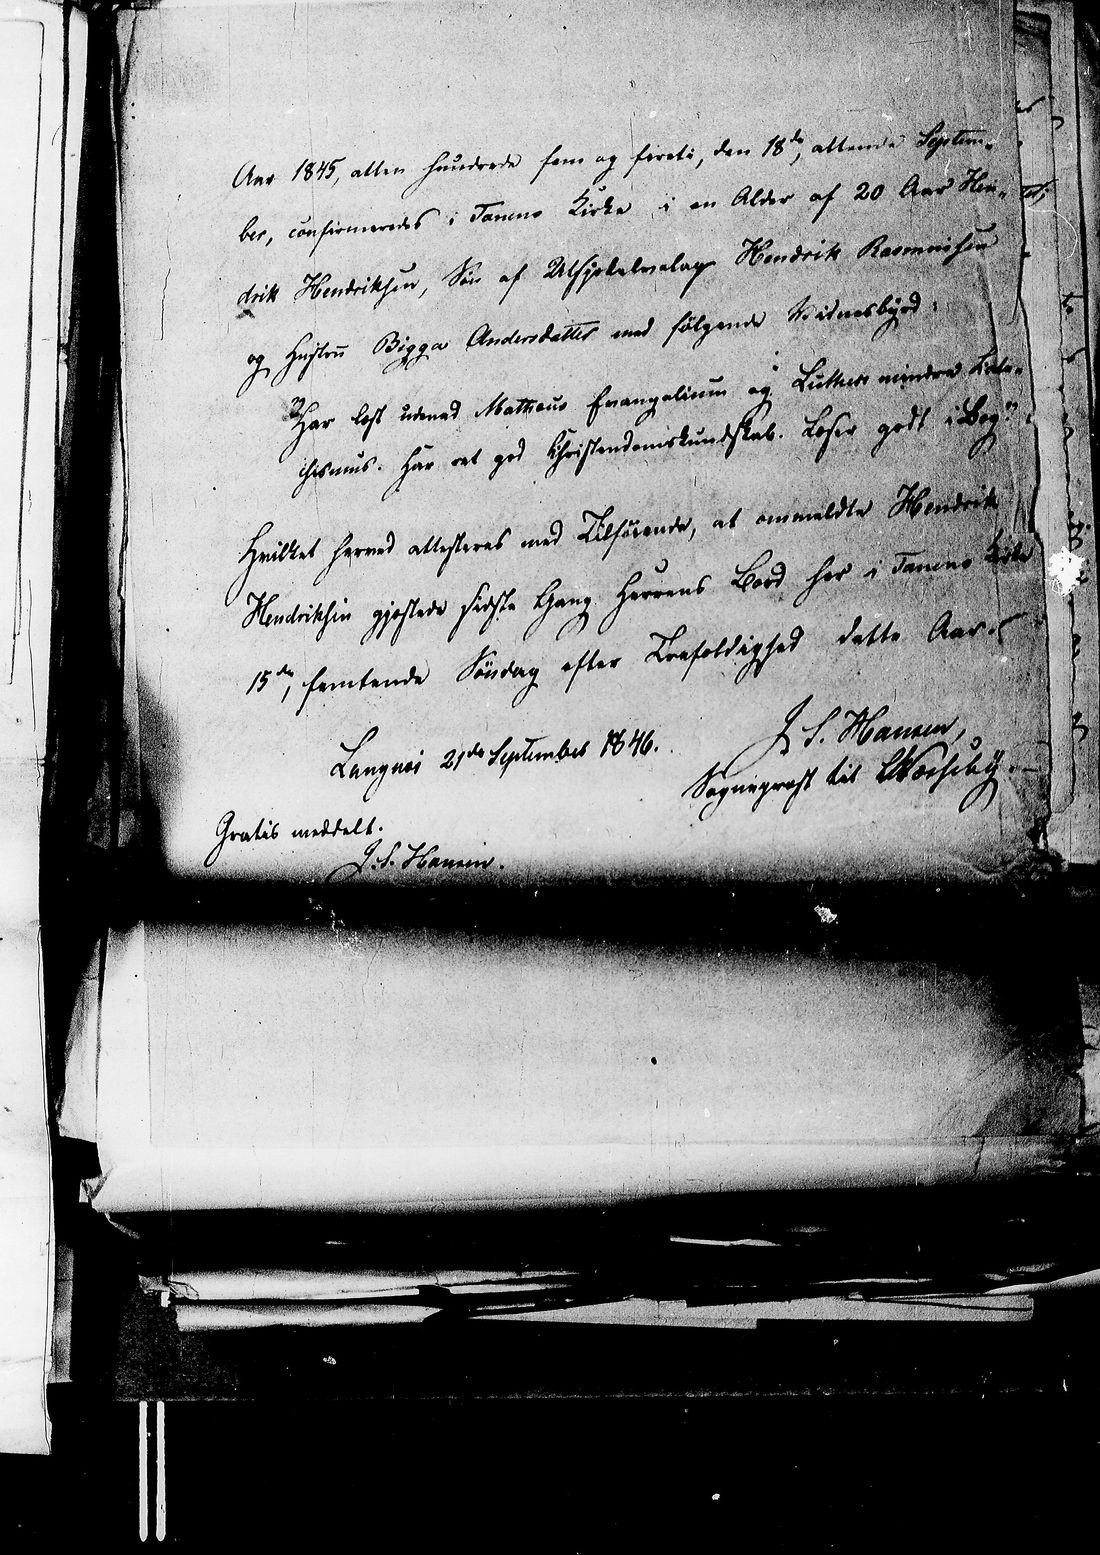 Aar 1845, atten hundrede fem og fireti, den 18de, attende Septem-
ber, confirmeredes i Tanens Kirke i en Alder af 20 Aar Hen-
drik Hendriksen, Søn af Hendrik Rasmussen
og Hustru Bigga Andersdatter med følgende Vidnesbyrd:
"Har læst udenad Matthæus Evangelium og Luthers mindre Kate-
chismus. Har ret god Christendomskundskab. Læser godt i Bog"
Hvilket herved attesteres med Tilføiende, at ommeldte Hendrik
Hendriksen gjæstede sidste Gang Herrens Bord her i Tanens Kirke
15de, femtende Søndag efter Trefoldighed dette Aar.
Langnæs 21de September 1846.
J. S. Hansen,
Sognepræst til
Gratis meddelt.
J. S. Hansen.